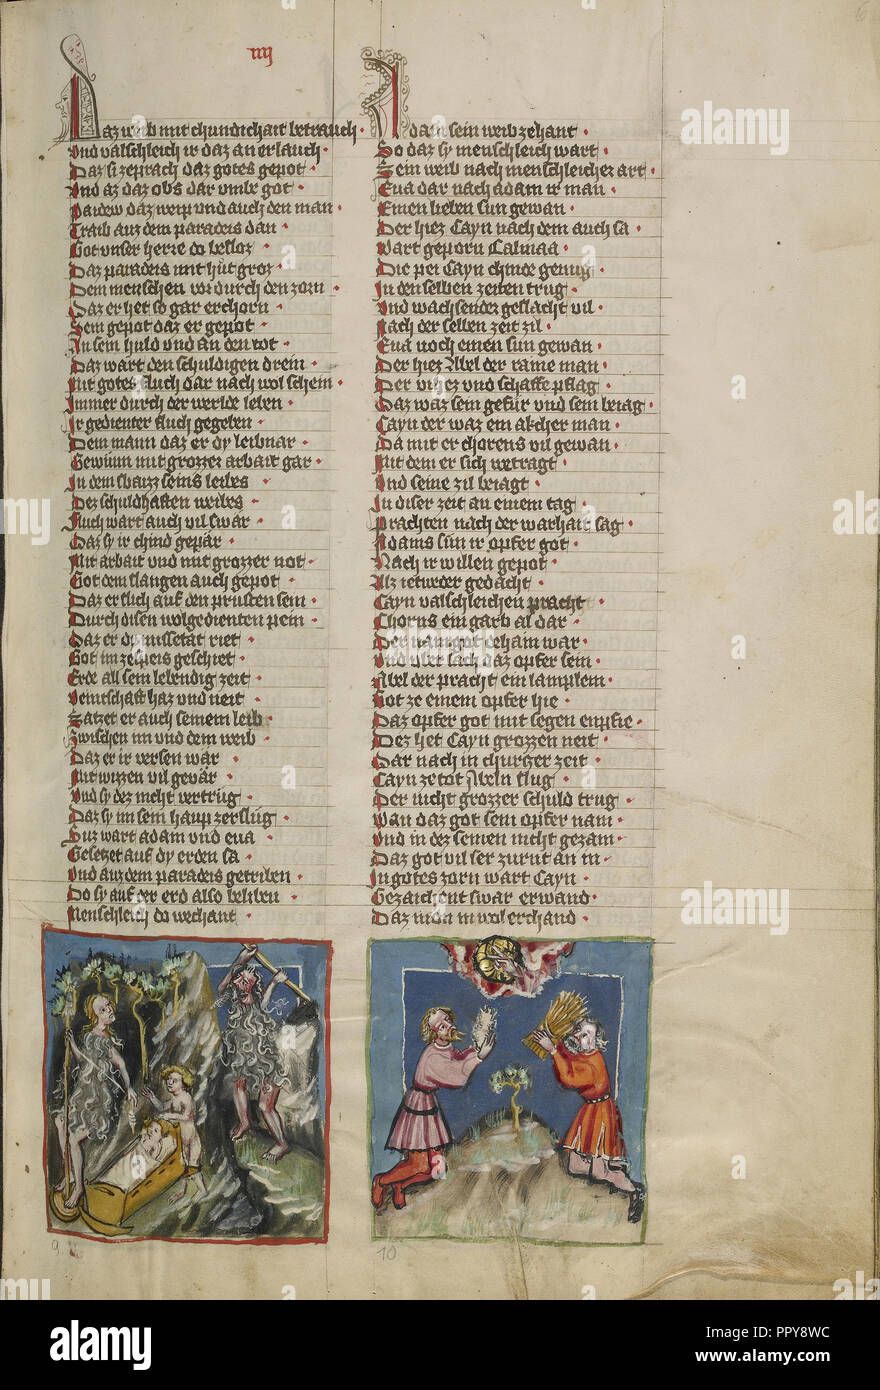 iiij
Daz weib mit chundichait betrauch
Und valschleich ir daz an erlauch
Daz si zeprach daz gotes gepot
Und az daz obs dar umbe got
Paidew daz weip und auch den man
Traib auz dem paradeis dan
Got unser herre do besloz
Daz paradeis mit hüt groz
Dem menschen vor durch den zorn
Daz er het so gar erchorn
Sein gepot daz er gepot
An sein huld und an den tot
Daz wart den schuldigen drein
Mit gotes fluch dar nach wol schein
Immer durch der werlde leben
Ir gedienter fluch gegeben
Dem mann daz er dy leibnar
Gewünn mit grozzer arbait gar
In dem swaizz seins leibes
Dez schuldhaften weibes
Fluch wart auch vil swar
Daz sy ir chind gepär
Mit arbait und mit grozzer not
Got dem slangen auch gepot
Daz er slich auf den prusten sein
Durch disen wolgedienten pein
Daz er dy missetat riet
Got im ze speis geschiet
Erde all sein lebendig zeit
Veintschaft haz und neit
Satzet er auch seinem leib
Zwischen im und dem weib
Daz er ir versen war
Mit wizzen vil gevär
Und sy dez nicht vertrüg
Daz sy im sein haup zerslüg
Suz wart adam und eua
Gesetzet auf dy erden sa
Und auz dem paradeis getriben
Do sy auf der erd also beliben
Menschleich do wechant
Adam sein weib zehant
So daz sy menschleich wart
Sein weib nach menschleicher art
Eua dar nach adam ir man
Einen lieben sun gewan
Der hiez Cayn nach dem auch sa
Wart geporn Calmaa
Die pei Cayn chinde genug
In den selben zeiten trug
Und wachsender geslächt vil
Nach der selben zeit zil
Eua noch einen sun gewan
Der hiez Abel der raine man
Der vihez und schaffe pflag
Daz waz sein gefür und sein beiag
Cayn der waz ein akcher man
Da mit er chorens vil gewan
Mit dem er sich betragt
Und seine zil beiagt
In diser zeit an einem tag
Prachten nach der warhait sag
Adams sün ir opfer got
Nach ir willen gepot
Alz ietweder gedacht
Cayn valschleichen pracht
Chorns ein garb al dar
Der nam got deham war
Und uber sach daz opfer sein
Abel der pracht ein lamplein
Got ze einem opfer hie
Daz opfer got mit segen enpfie
Dez het Cayn grozzen neit
Dar nach in churczer zeit
Cayn ze tot Abeln slug
Der nicht grozzer schuld trug
Wan daz got sein opfer nam
Und in dez seinen nicht gezam
Daz got vil ser zurnt an in
In gotes zorn wart Cayn
Gezaichent swar erwand
Daz man in wol erchand
9
10
alamy
Image ID: PPY8WC
www.alamy.com